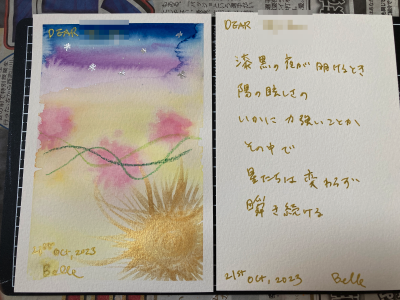 DEAR
21st Oct, 2023
Belle
DEAR
漆黒の夜が明けるとき
陽の眩しさの
いかに力強いことか
その中で
星たちは変わらず
瞬き続ける
21st Oct, 2023 Belle